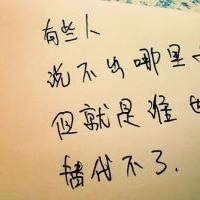 有些人
说不出哪里
但就是谁
替代不了.